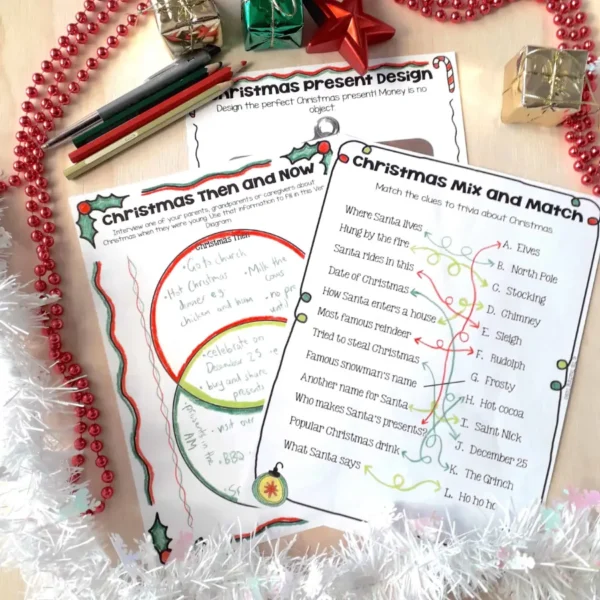 Christmas Present Design
Design the perfect Christmas present! Money is no
object
Christmas Then and Now
Interview one of your parents, grandparents or caregivers about
Christmas when they were young. Use that information to fill in this
Diagram
Christmas Then
• Go to church
• Hot Christmas
dinner eg.
chicken and ham
• Milk the
cows
• no
• celebrate on
December 25
• buy and share
presents
• presents in the
AM
• visit our
• BBQ
Christmas Mix and Match
Match the clues to trivia about Christmas
Where Santa lives
Hung by the fire
Santa rides in this
Date of Christmas
How Santa enters a house
Most famous reindeer
Tried to steal Christmas
Famous snowman's name
Another name for Santa
Who makes Santa's presents?
Popular Christmas drink
What Santa says
A. Elves
B. North Pole
C. Stocking
D. Chimney
E. Sleigh
F. Rudolph
G. Frosty
H. Hot cocoa
I. Saint Nick
J. December 25
K. The Grinch
L. Ho ho ho